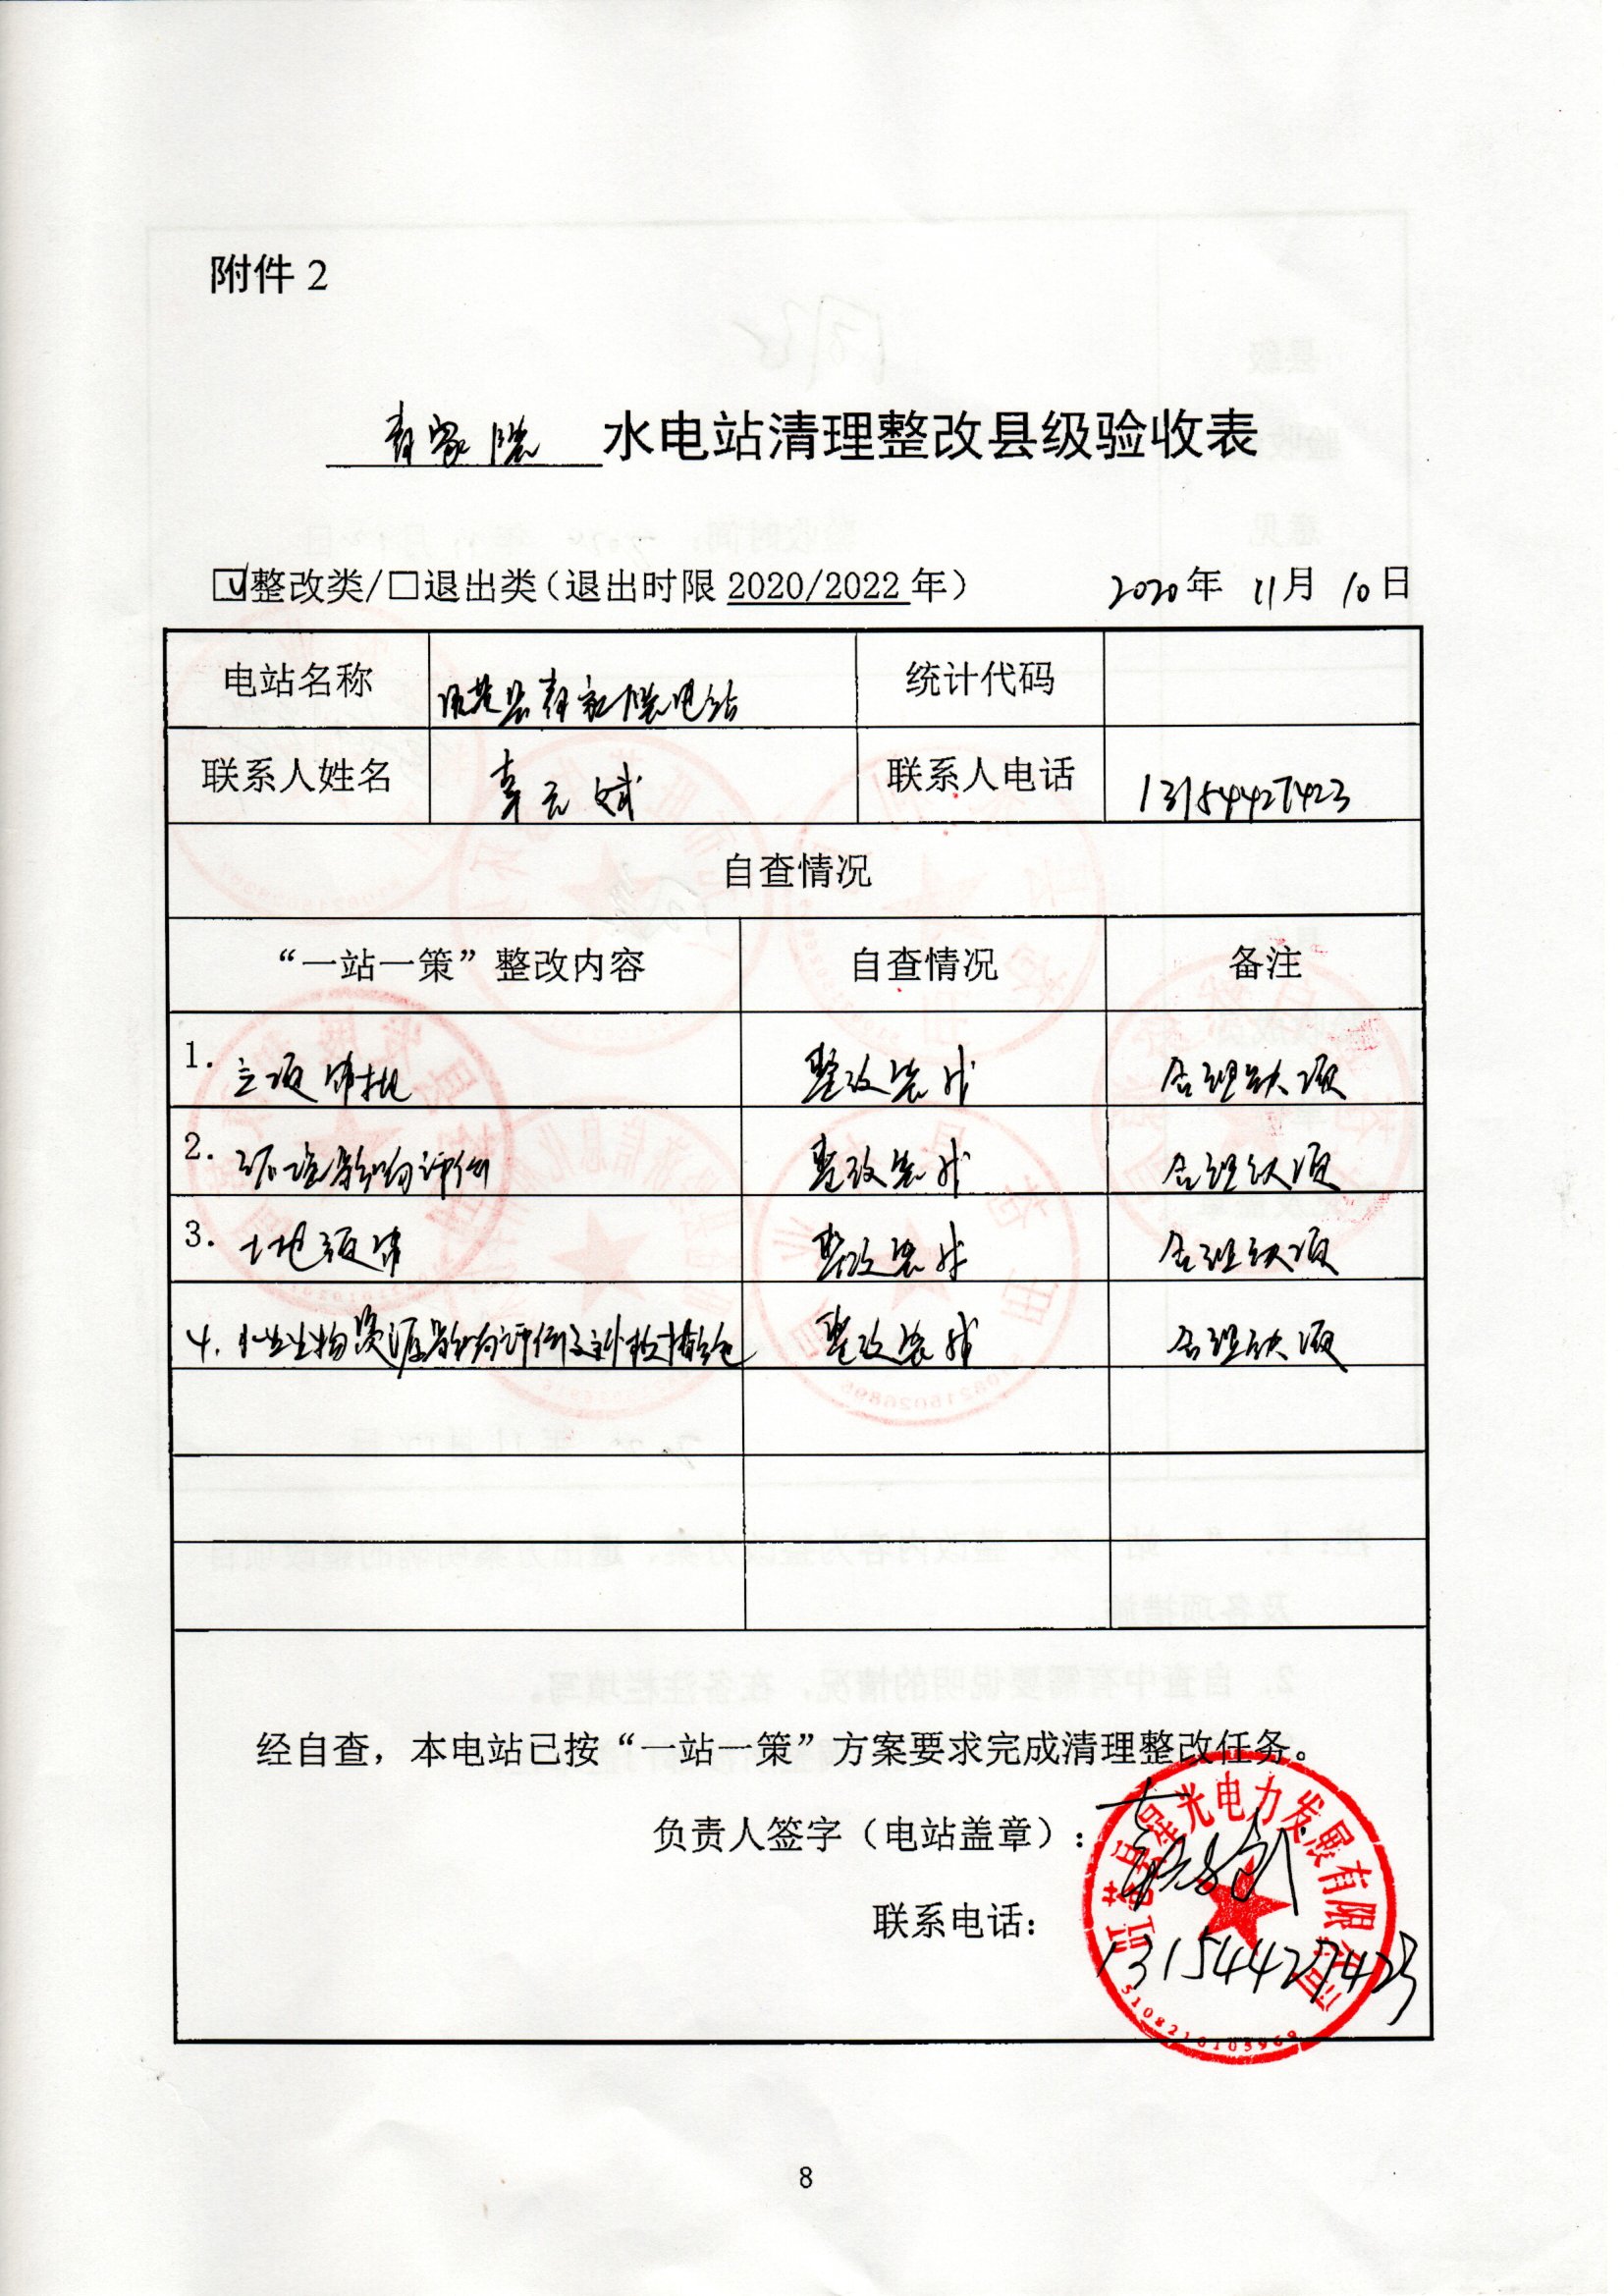 附件 2
水电站清理整改县级验收表
☑整改类/□退出类（退出时限 2020/2022 年） 2020年 11月 10日
电站名称 电站 统计代码
联系人姓名 联系人电话 13154427423
自查情况
“一站一策”整改内容 自查情况 备注
1. 立项审批 整改完成 合理缺项
2. 环境影响评价 整改完成 合理缺项
3. 土地预审 整改完成 合理缺项
4. 水生生物资源影响评价及补救措施 整改完成 合理缺项
经自查，本电站已按“一站一策”方案要求完成清理整改任务。
负责人签字（电站盖章）：
旺苍县星光电力发展有限公司
联系电话：
13154427423
8